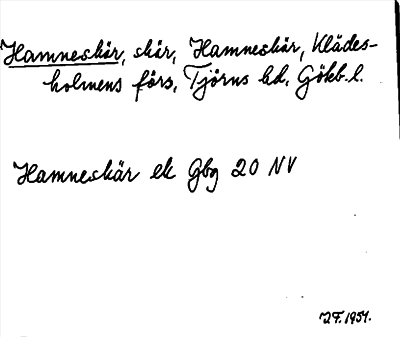 Hamneskär, skär, Hamneskär, Klädes-
holmens förs, Tjörns hd, Gökb. l.
Hamneskär ek Gbg 20 NV
1951.